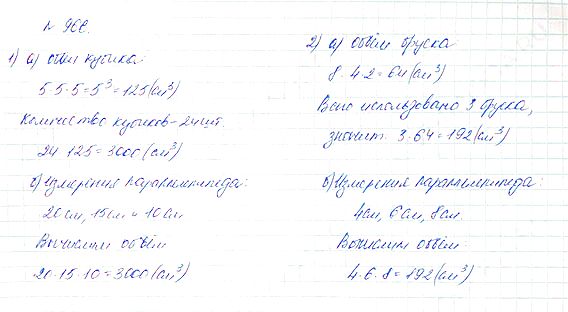 № 966.
1) а) объём кубика:
5·5·5=5³=125(см³)
Количество кубиков-24шт.
24·125=3000(см³)
б) Измерения параллелепипеда:
20см, 15см и 10см
Вычислим объём
20·15·10=3000(см³)
2) а) объём бруска
8·4·2=64(см³)
Всего использовано 3 бруска,
значит: 3·64=192(см³)
б) Измерения параллелепипеда:
4см, 6см, 8см.
Вычислим объём:
4·6·8=192(см³)